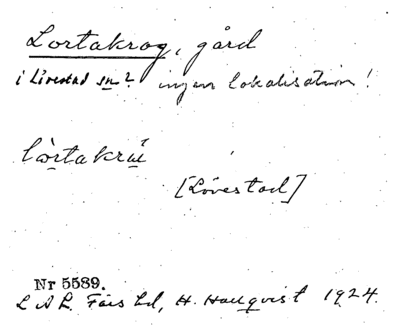 Lortakrog, gård
i Lövestad sn? ingen lokalisation!
[Lövestad]
Nr 5589.
L A L. Färs hd, H. Hallqvist 1924.